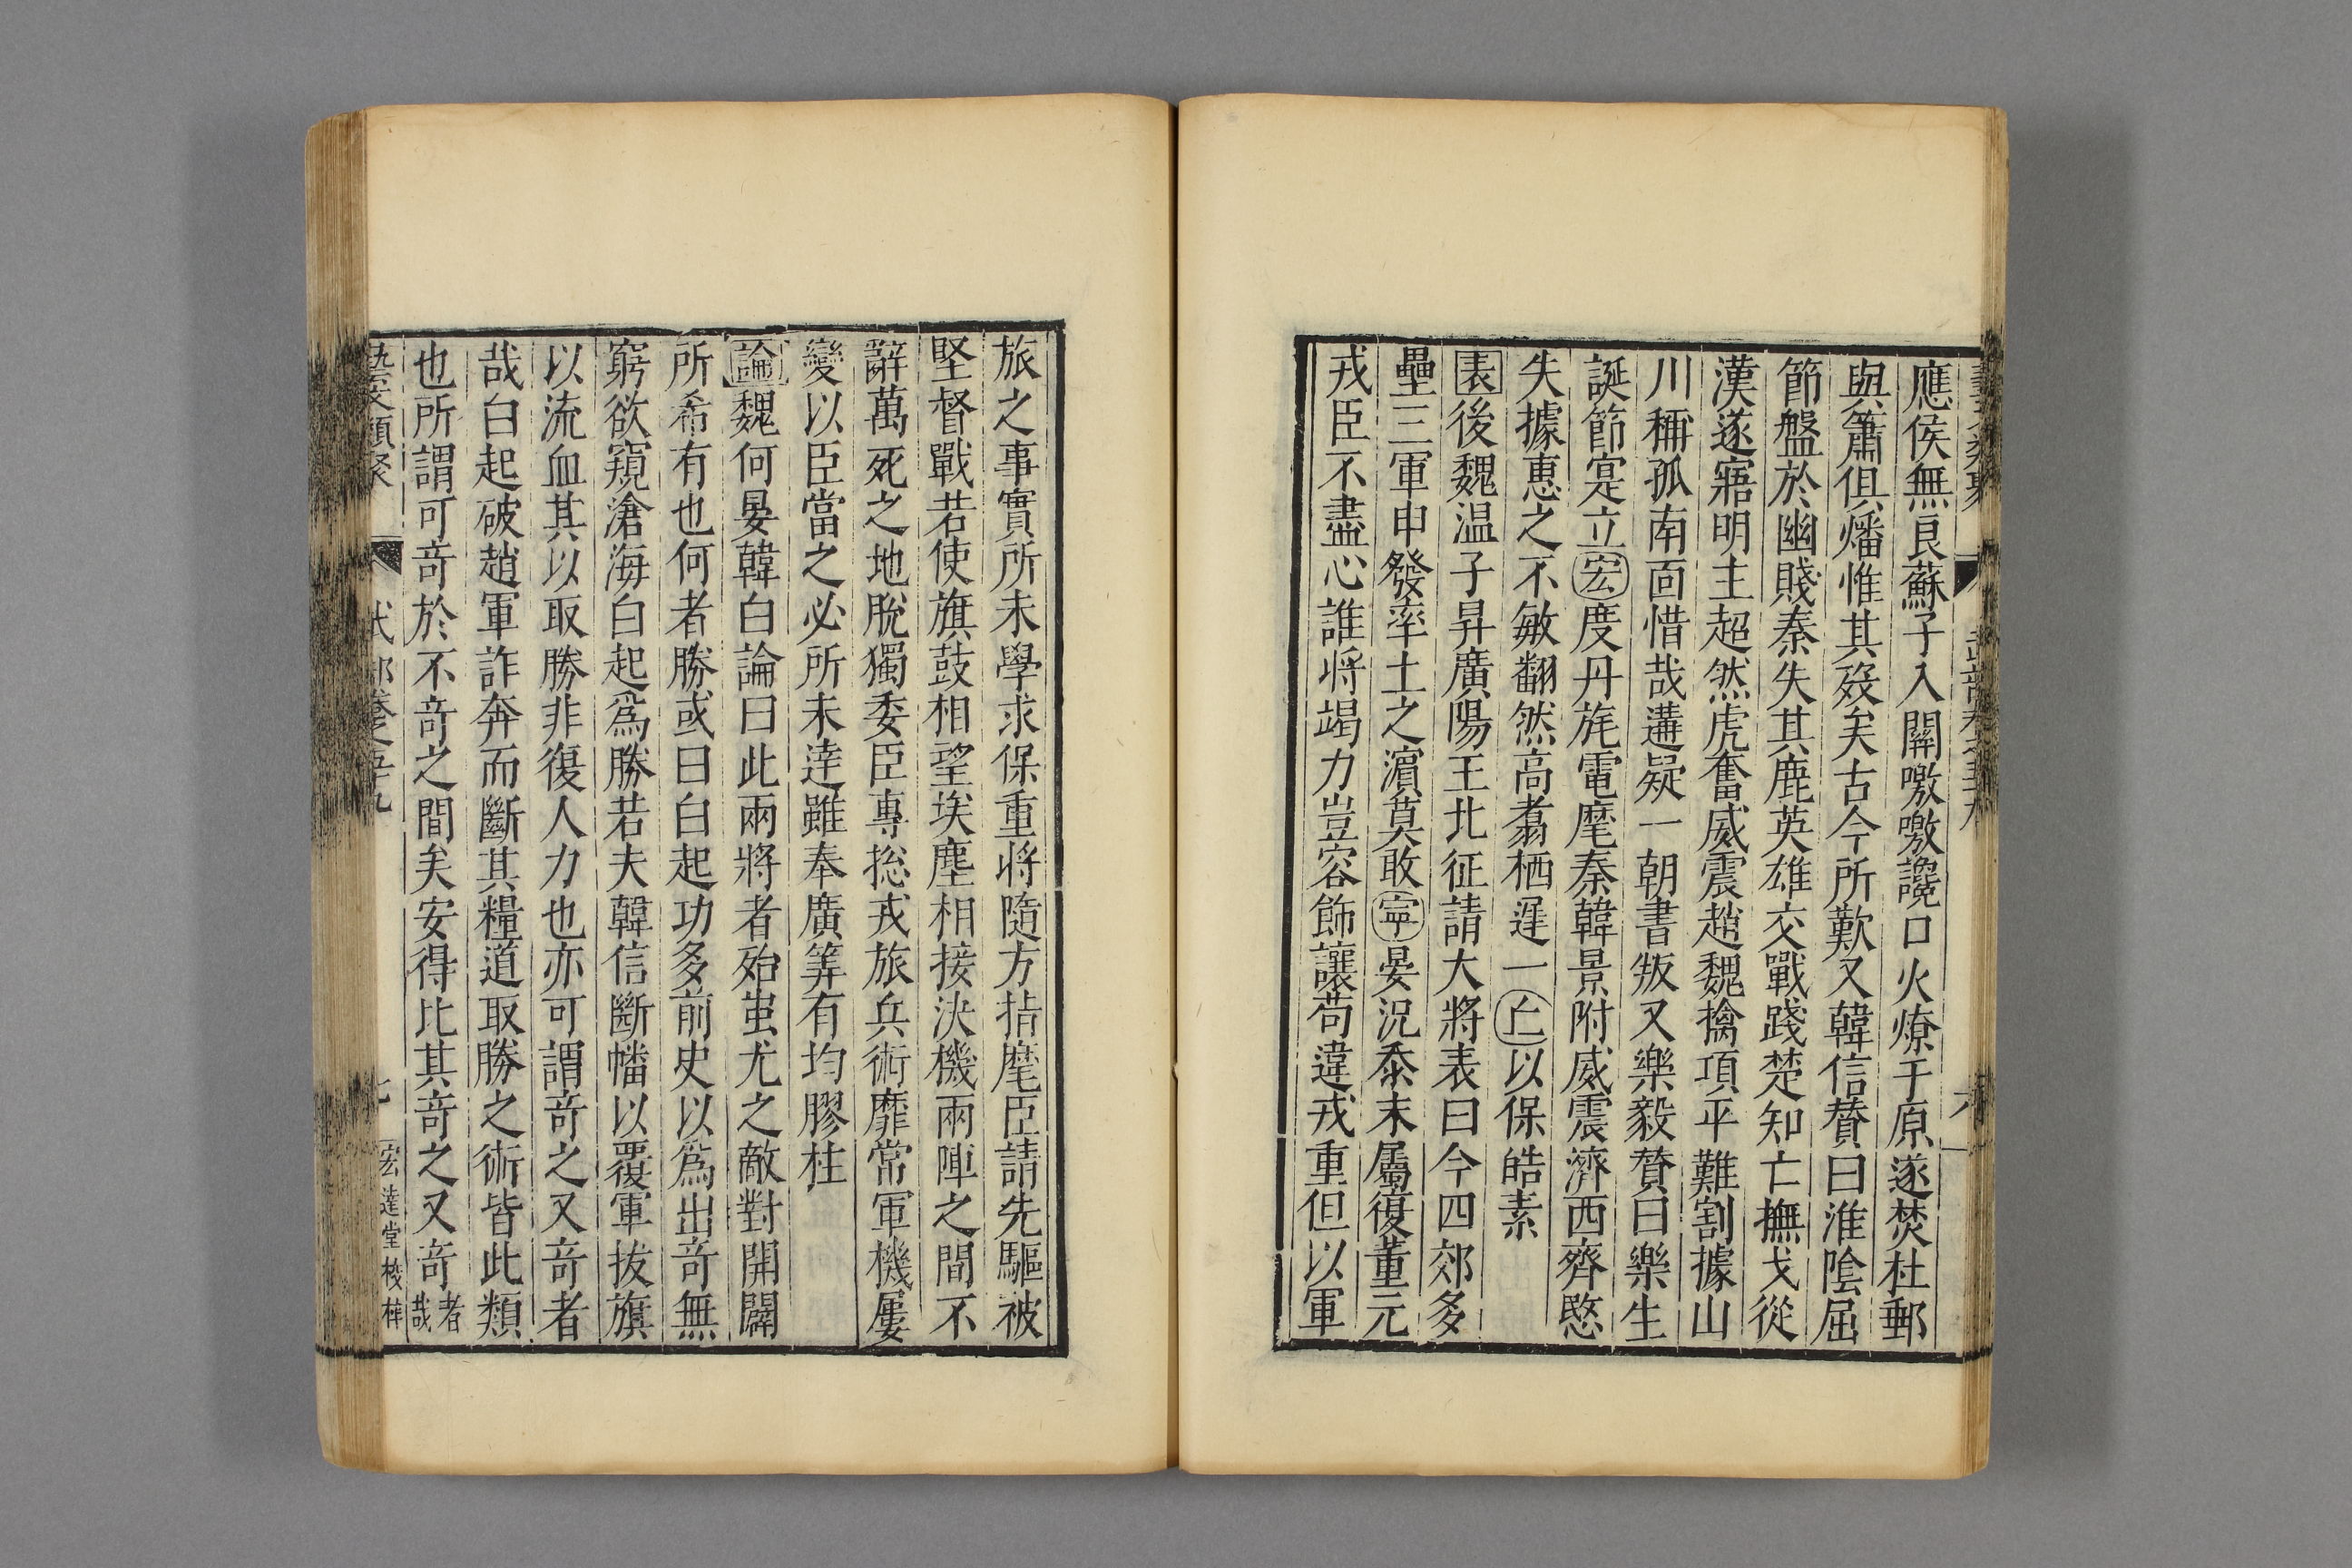 應侯無良蘇子入關嗷嗷讒口火燎于原遂焚杜郵
與簫俱燔惟其殁矣古今所歎又韓信賛曰淮陰屈
節盤於幽賤秦失其鹿英雄交戰踐楚知亡撫戈從
漢遂寤明主超然虎奮威震趙魏擒項平難割據山
川稱孤南面惜哉遘疑一朝書叛又樂毅賛曰樂生
誕節寔立宏度丹旄電麾秦韓景附威震濟西齊愍
失據惠之不敏翻然高翥栖遲一丘以保皓素
表後魏温子昇廣陽王北征請大將表曰今四郊多
壘三軍申發率土之濵莫敢寧晏況忝末屬復董元
戎臣不盡心誰將竭力豈容飾讓苟違戎重但以軍
旅之事實所未學求保重將隨方指麾臣請先驅被
堅督戰若使旗鼓相望埃塵相接決機兩陣之間不
辭萬死之地脫獨委臣專捴戎旅兵術靡常軍機屢
變以臣當之必所未逹雖奉廣筭有均膠柱
論魏何晏韓白論曰此兩將者殆蚩尤之敵對開闢
所希有也何者勝或曰白起功多前史以爲出奇無
窮欲窺滄海白起爲勝若夫韓信斷幡以覆軍拔旗
以流血其以取勝非復人力也亦可謂奇之又奇者
哉白起破趙軍詐奔而斷其糧道取勝之術皆此類
也所謂可奇於不奇之間矣安得比其奇之又奇者哉
藝文類聚 武部卷之五十九 七 宏達堂校梓